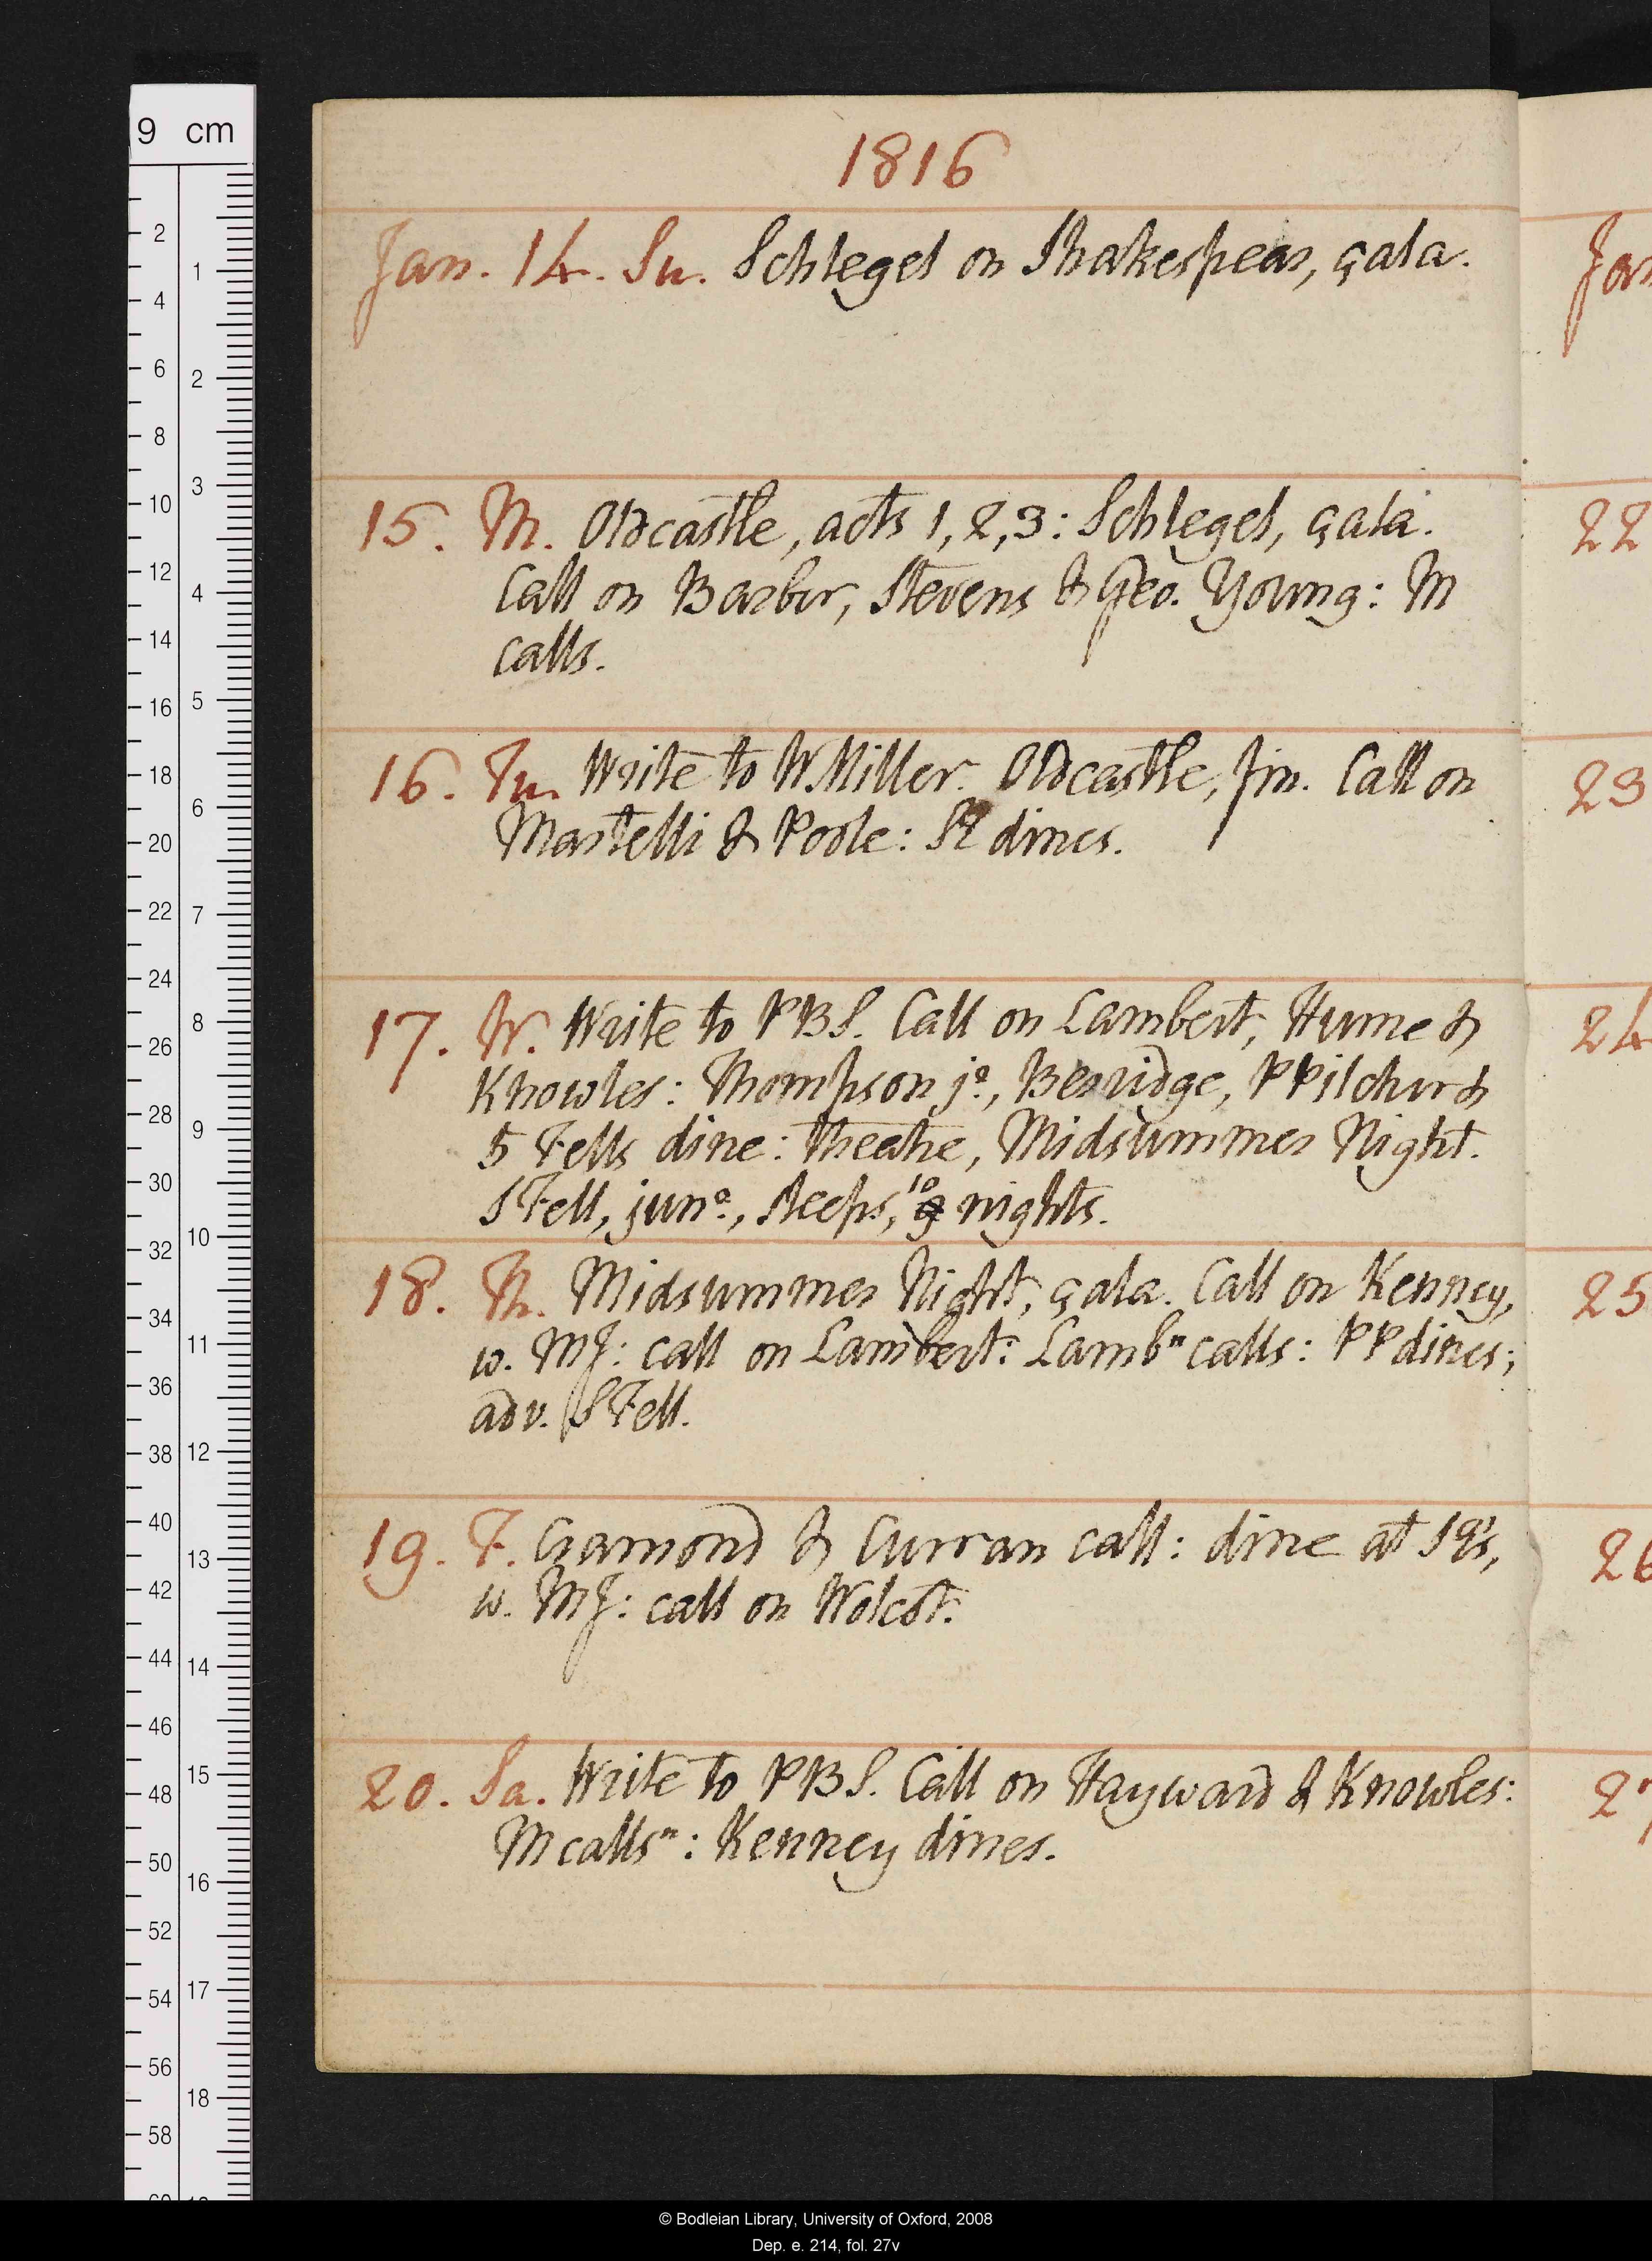 1816
Jan. 14. Su. Schlegel on Shakespear, çala.
15. M. Oldcastle, acts 1, 2, 3: Schlegel, çala.
Call on Barber, Stevens & Geo. Young: M
calls.
16. Tu. Write to W Miller. Oldcastle, fin. Call on
Martelli & Poole: dines.
17. W. Write to PBS. Call on Lambert, Hume &
Knowles: Thompson jº, Bevridge, P Pilcher &
5 Fells dine: theatre, Midsummer Night.
S Fell, junº., sleeps, 10 nights.
18. Th. Midsummer Night, çala. Call on Kenney,
w. MJ: call on Lambert: Lambⁿ calls: PP dines;
adv. S Fell.
19. F. Gamond & Curran call: dine at 19's,
w. MJ: call on Wolcot.
20. Sa. Write to PBS. Call on Hayward & Knowles:
M callsⁿ: Kenney dines.
Jan
22
23
24
25
26
27
9 cm
2
4
6
8
10
12
14
16
18
20
22
24
26
28
30
32
34
36
38
40
42
44
46
48
50
52
54
56
58
1
2
3
4
5
6
7
8
9
10
11
12
13
14
15
16
17
18
© Bodleian Library, University of Oxford, 2008
Dep. e. 214, fol. 27v